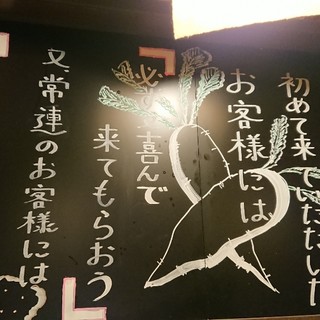 初めて来ていただいた
お客様には
必ず喜んで
来てもらおう
又、常連のお客様には